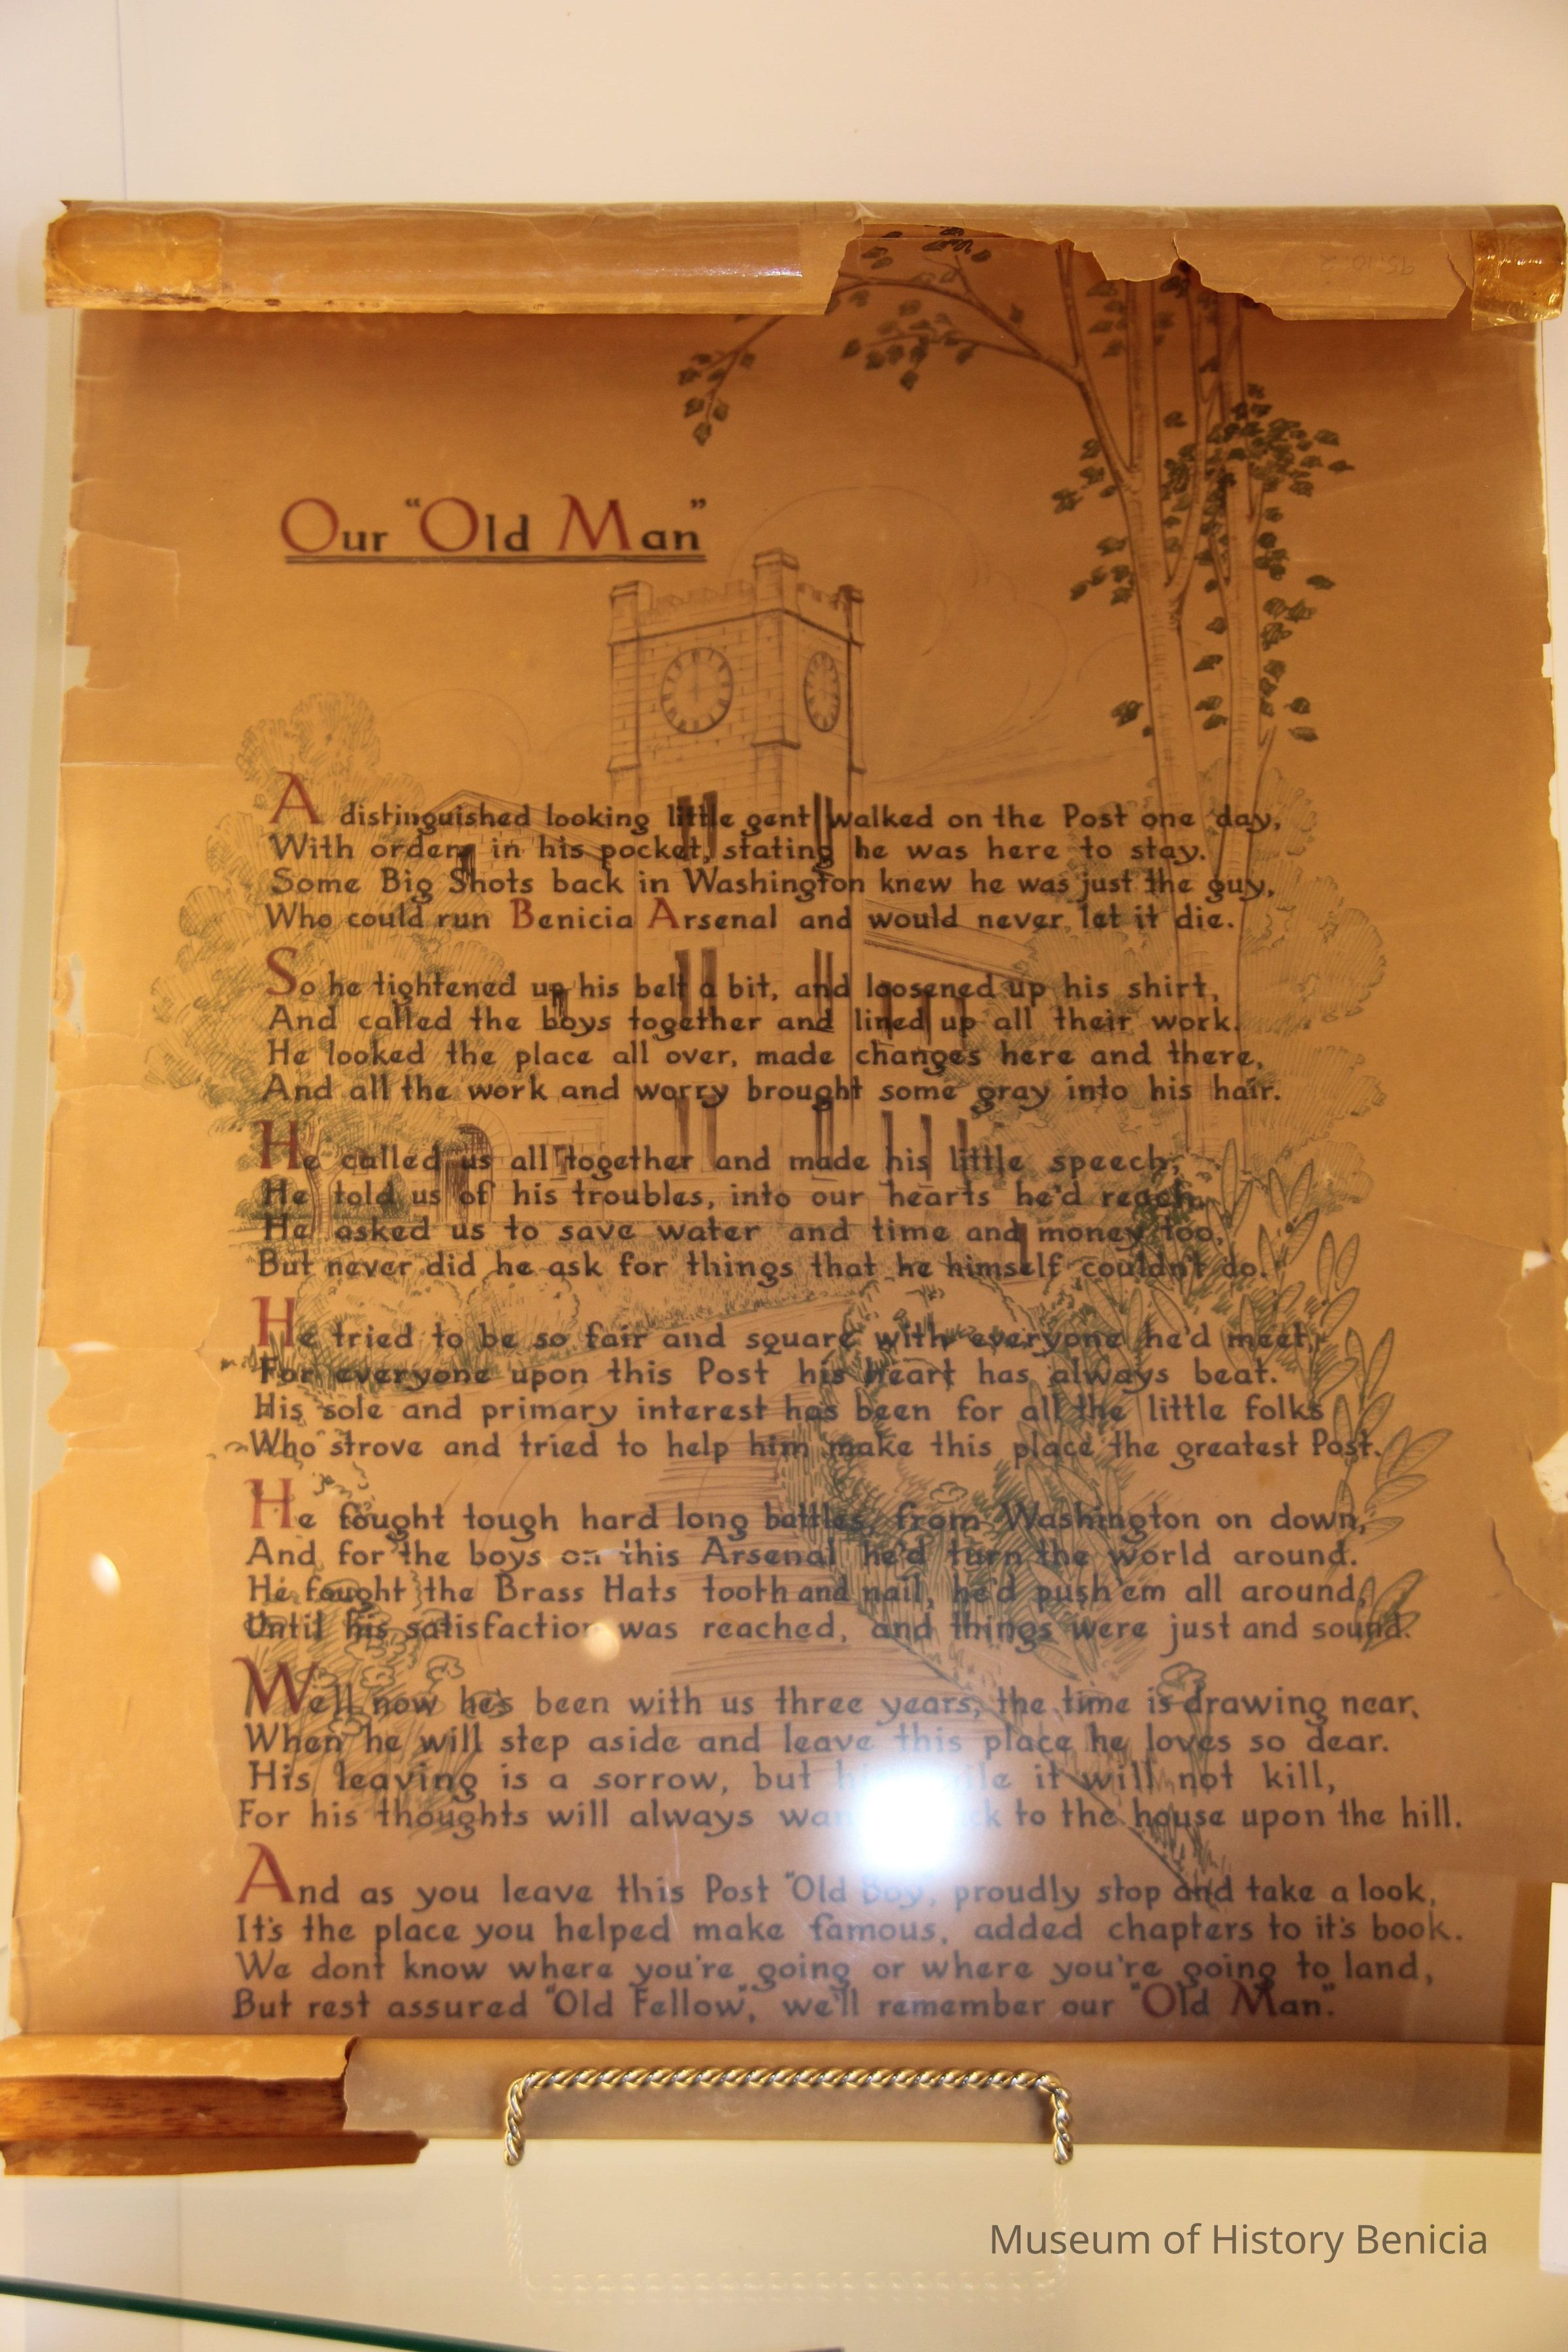 Our "Old Man"
A distinguished looking little gent walked on the Post one day,
With orders in his pocket, stating he was here to stay.
Some Big Shots back in Washington knew he was just the guy,
Who could run Benicia Arsenal and would never let it die.
So he tightened up his belt a bit, and loosened up his shirt,
And called the boys together and lined up all their work.
He looked the place all over, made changes here and there,
And all the work and worry brought some gray into his hair.
He called us all together and made his little speech,
He told us of his troubles, into our hearts he'd reach,
He asked us to save water and time and money too,
But never did he ask for things that he himself couldn't do.
He tried to be so fair and square with everyone he'd meet,
For everyone upon this Post his heart has always beat.
His sole and primary interest has been for all the little folks
Who strove and tried to help him make this place the greatest Post.
He fought tough hard long battles, from Washington on down,
And for the boys on this Arsenal he'd turn the world around.
He fought the Brass Hats tooth and nail, he'd push 'em all around,
Until his satisfaction was reached, and things were just and sound.
Well now he's been with us three years, the time is drawing near,
When he will step aside and leave this place he loves so dear.
His leaving is a sorrow, but it will not kill,
For his thoughts will always to the house upon the hill.
And as you leave this Post "Old Boy", proudly stop and take a look,
It's the place you helped make famous, added chapters to it's book.
We dont know where you're going or where you're going to land,
But rest assured "Old Fellow", we'll remember our "Old Man".
Museum of History Benicia